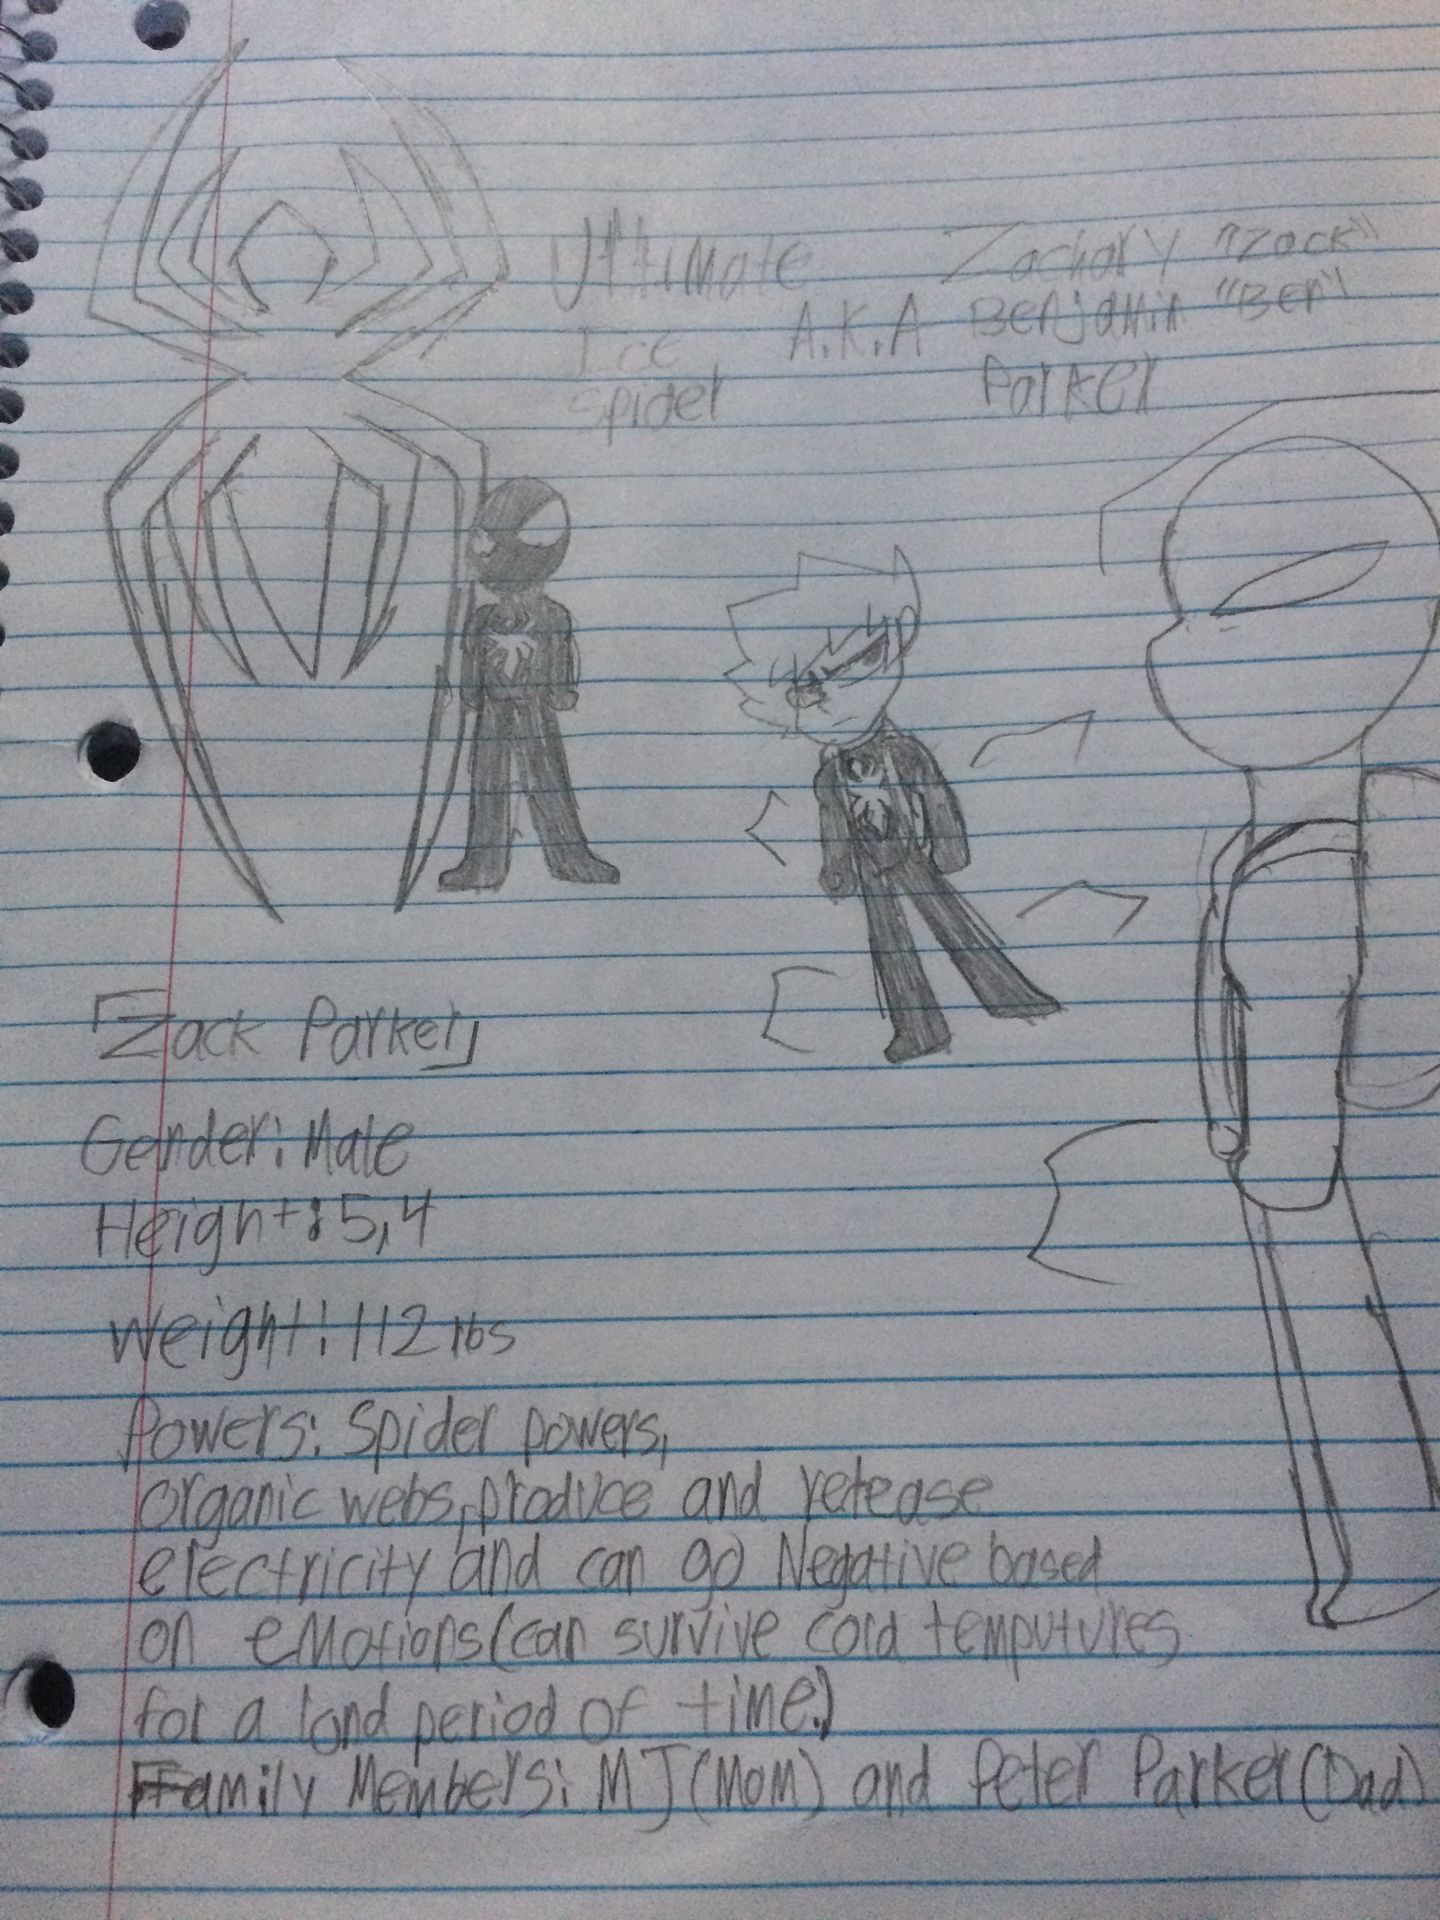 Ultimate
Ice
Spider
A.K.A
Zachary "Zack"
Benjamin "Ben"
Parker
「Zack Parker」
Gender: Male
Height: 5,4
Weight: 112 lbs
Powers: Spider powers,
organic webs, produce and release
electricity and can go Negative based
on emotions (can survive cold temputures
for a lond period of time.)
Family Members: MJ (Mom) and Peter Parker (Dad)